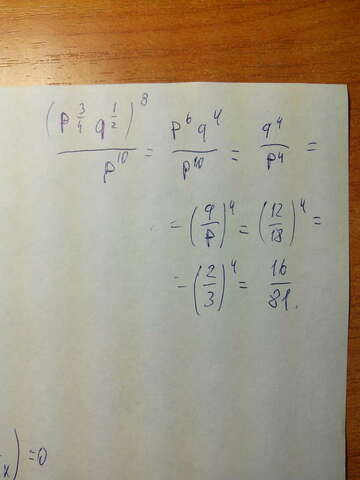 (p^{3/4} q^{1/2})^8 / p^{10} = p^6 q^4 / p^{10} = q^4 / p^4 =
= (q/p)^4 = (12/18)^4 =
= (2/3)^4 = 16/81.
x) = 0